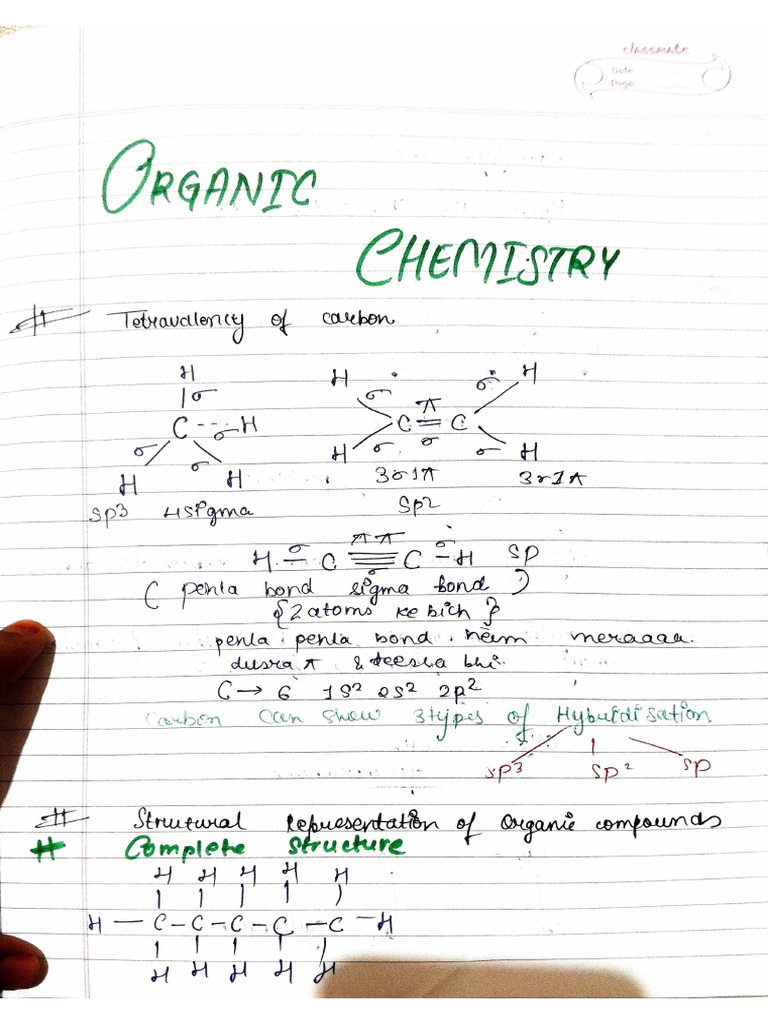 classmate
Date
Page
ORGANIC
CHEMISTRY
# Tetravalency of carbon
H H H
σ σ σ
C H π
σ C = C
σ σ σ σ σ
H H H H
3σ1π 3σ1π
sp3 4sigma sp2
ππ
H σ C ≡ C σ H sp
σ
( pehla bond sigma bond )
{ 2 atoms ke bich }
pehla pehla bond
dusra π & teesra bhi.
C → 6 1s² 2s² 2p²
Carbon can show 3 types of Hybridisation
sp3 sp² sp
# Structural representation of organic compounds
# Complete structure
H H H H H
H — C – C – C – C – C – H
H H H H H